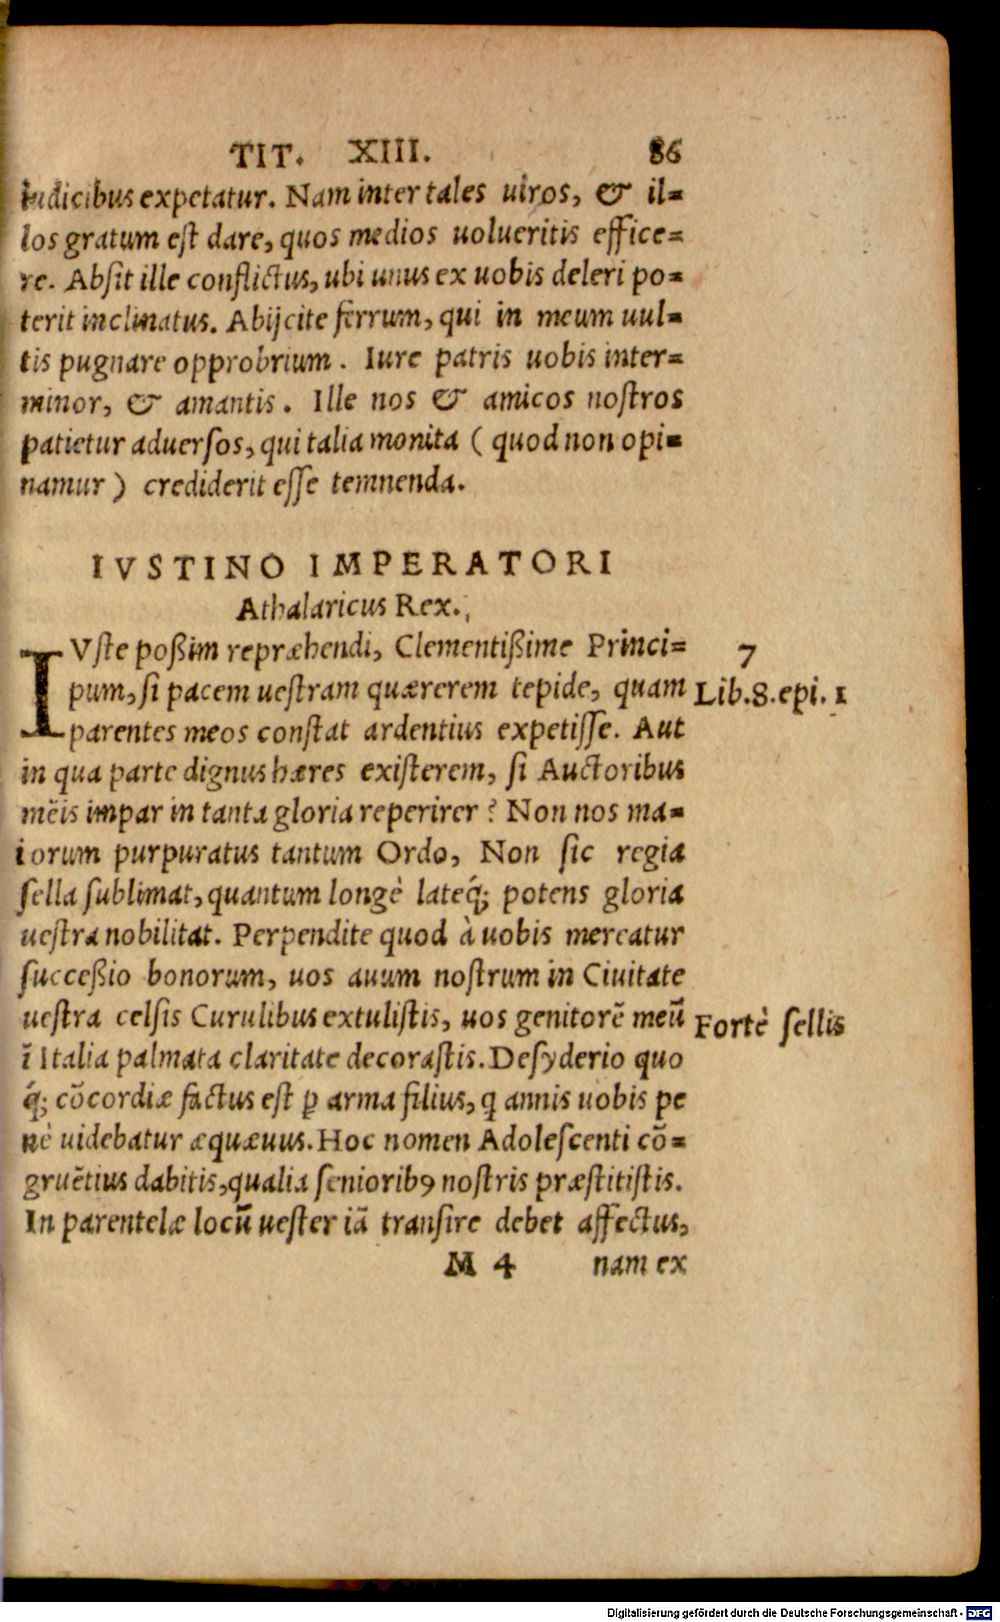 TIT. XIII. 86
iudicibus expetatur. Nam inter tales uiros, & il=
los gratum est dare, quos medios uolueritis effice=
re. Absit ille conflictus, ubi unus ex uobis deleri po=
terit inclinatus. Abijcite ferrum, qui in meum uul=
tis pugnare opprobrium. Iure patris uobis inter=
minor, & amantis. Ille nos & amicos nostros
patietur aduersos, qui talia monita (quod non opi=
namur) crediderit esse temnenda.
IVSTINO IMPERATORI
Athalaricus Rex.
IVste poßim repræhendi, Clementißime Princi= 7
pum, si pacem uestram quærerem tepide, quam Lib.8.epi.1
parentes meos constat ardentius expetisse. Aut
in qua parte dignus hæres existerem, si Auctoribus
mẽis impar in tanta gloria reperirer? Non nos ma=
iorum purpuratus tantum Ordo, Non sic regia
sella sublimat, quantum longè lateq́; potens gloria
uestra nobilitat. Perpendite quod à uobis mereatur
succeßio bonorum, uos auum nostrum in Ciuitate
uestra celsis Curulibus extulistis, uos genitorẽ meũ Fortè sellis
ĩ Italia palmata claritate decorastis. Desyderio quo
q́; cõcordiæ factus est ꝑ arma filius, q annis uobis pe
nè uidebatur æquæuus. Hoc nomen Adolescenti cõ=
gruẽtius dabitis, qualia seniorib9 nostris præstitistis.
In parentelæ locũ uester iã transire debet affectus,
M 4 nam ex
Digitalisierung gefördert durch die Deutsche Forschungsgemeinschaft - DFG